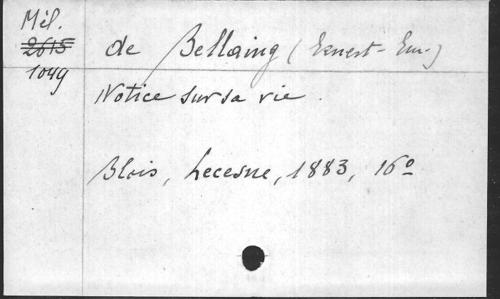 Mél.
2615
1049
de Bellaing (Ernest-Em.)
Notice sur sa vie.
Blois, Lecesne, 1883, 16º